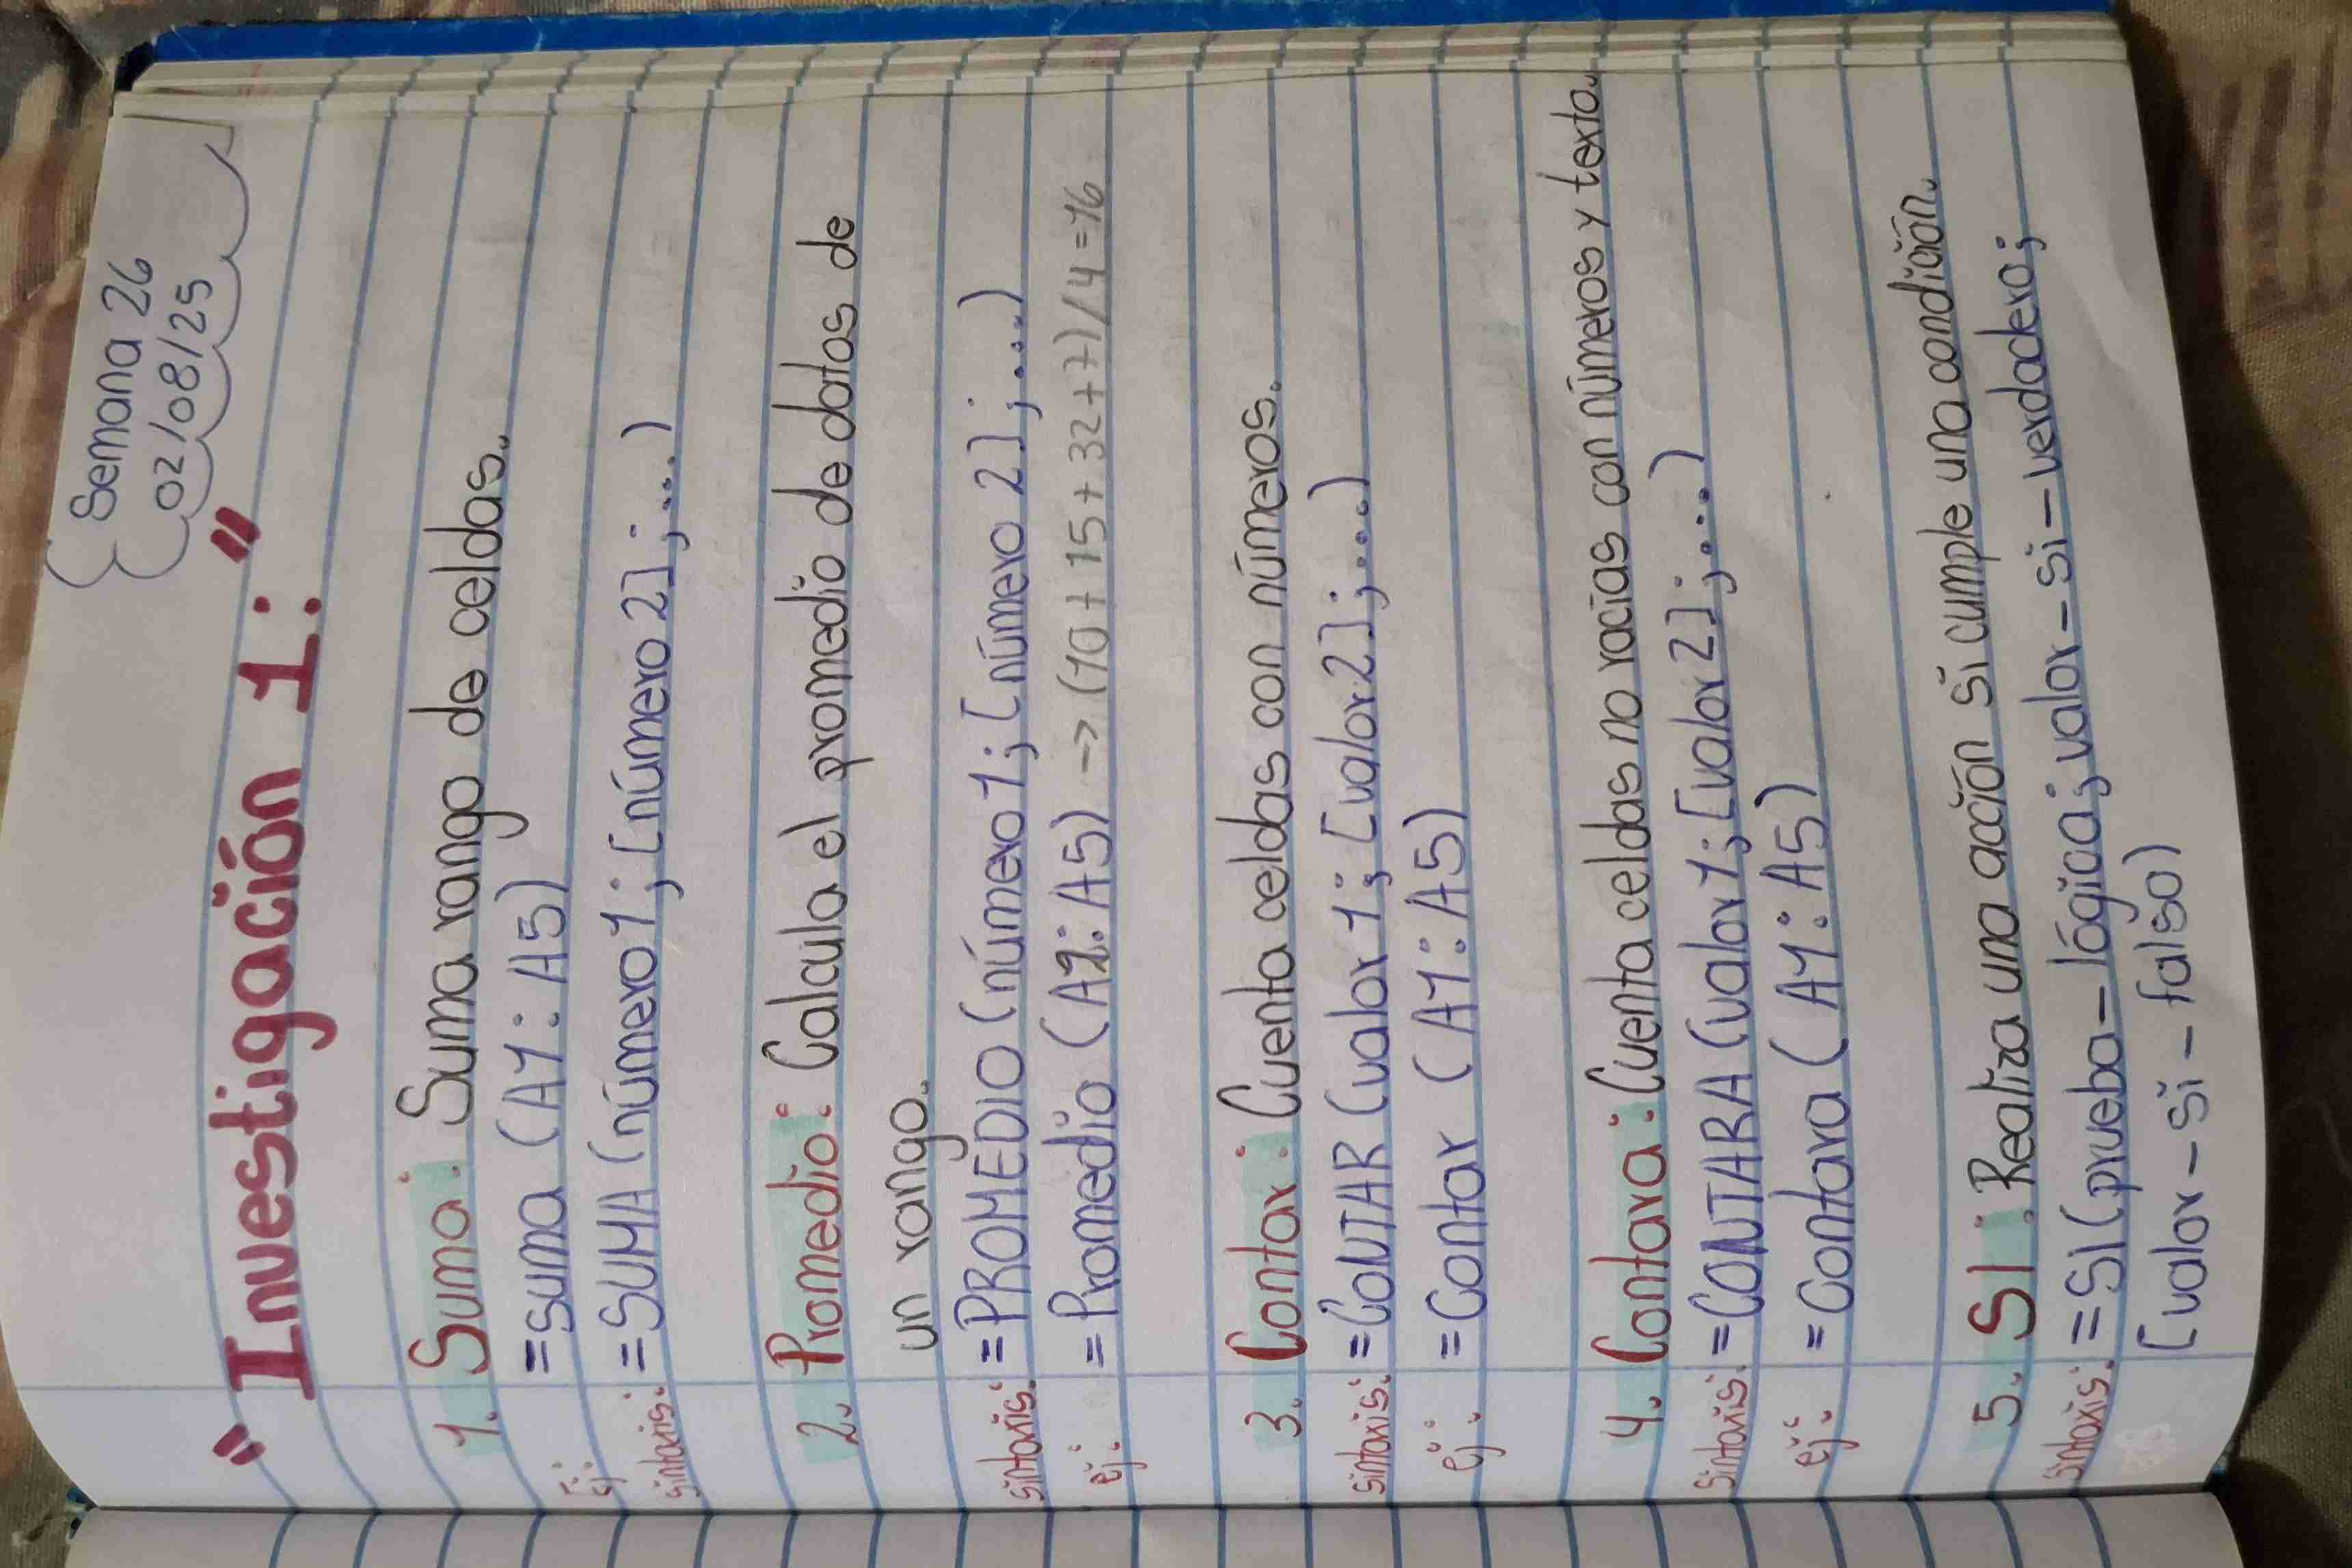 Semana 26
02/08/25
" Investigación 1: "
1. Suma: Suma rango de celdas.
Ej: =suma (A1:A5)
sintaxis: =SUMA (número1; [número 2]; ...)
2. Promedio: Calcula el promedio de datos de
un rango.
sintaxis: =PROMEDIO (número1; [número 2]; ....)
ej: =Promedio (A2:A5) -> (10+15+32+7)/4=16
3. Contar: Cuenta celdas con números.
sintaxis: =CONTAR (valor 1; [valor2]; ....)
ej: =Contar (A1:A5)
4. Contara: Cuenta celdas no racías con números y texto.
sintaxis: =CONTARA (valor1; [valor2]; ....)
ej: =Contara (A1:A5)
5. SI: Realiza una acción si cumple una condición.
sintaxis: =SI (prueba-lógica; valor-si-verdadero;
[valor-si-falso)